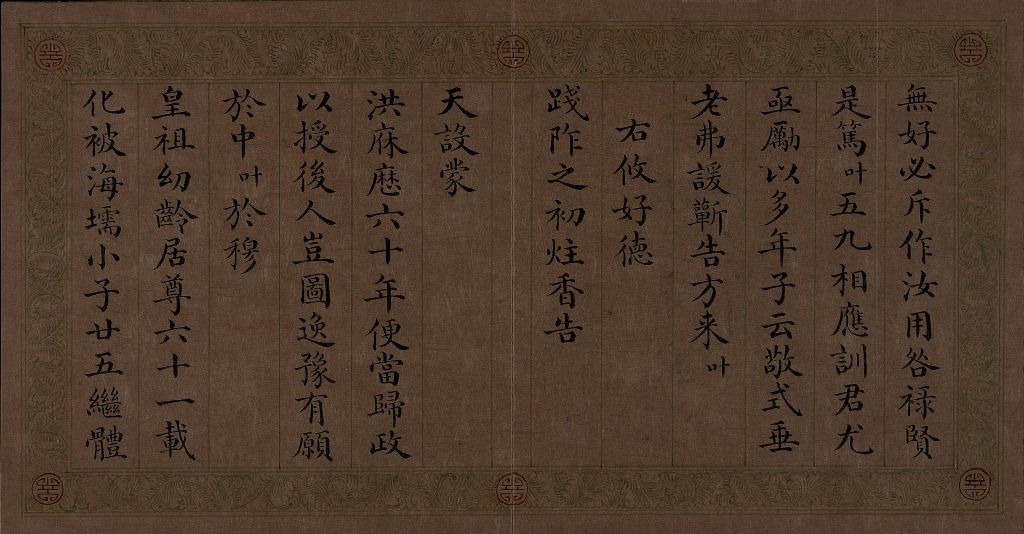 無好必斥作汝用咎祿賢
是篤叶五九相應訓君尤
亟勵以多年子云敬式垂
老弗諼蘄告方来叶
右攸好德
踐阼之初炷香告
天設蒙
洪庥厯六十年便當歸政
以授後人豈圖逸豫有願
於中叶於穆
皇祖幼齡居尊六十一載
化被海壖小子廿五繼體